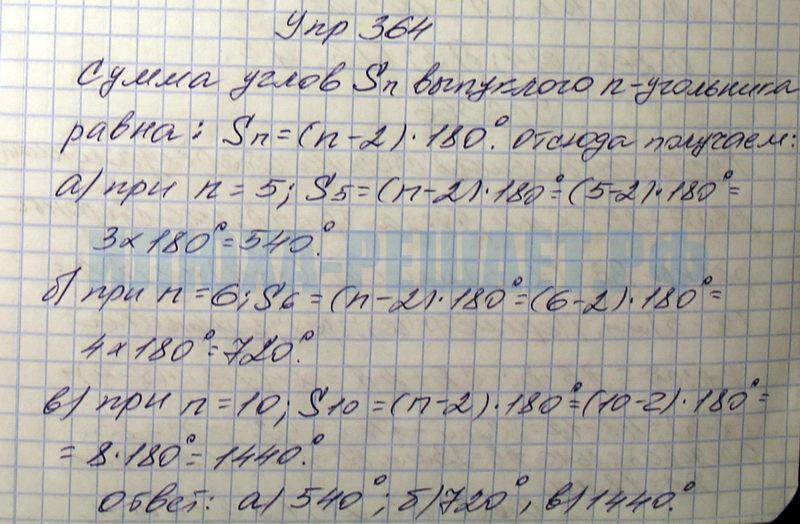 Упр 364
Сумма углов Sn выпуклого n-угольника
равна: Sn=(n-2)·180°. отсюда получаем:
а) при n=5; S5=(n-2)·180°=(5-2)·180°=
3x180°=540°.
ШКОЛА-РЕШАЕТ.РФ
б) при n=6; S6=(n-2)·180°=(6-2)·180°=
4x180°=720°.
в) при n=10; S10=(n-2)·180°=(10-2)·180°=
=8·180°=1440°.
ответ: а) 540°; б) 720°, в) 1440°.